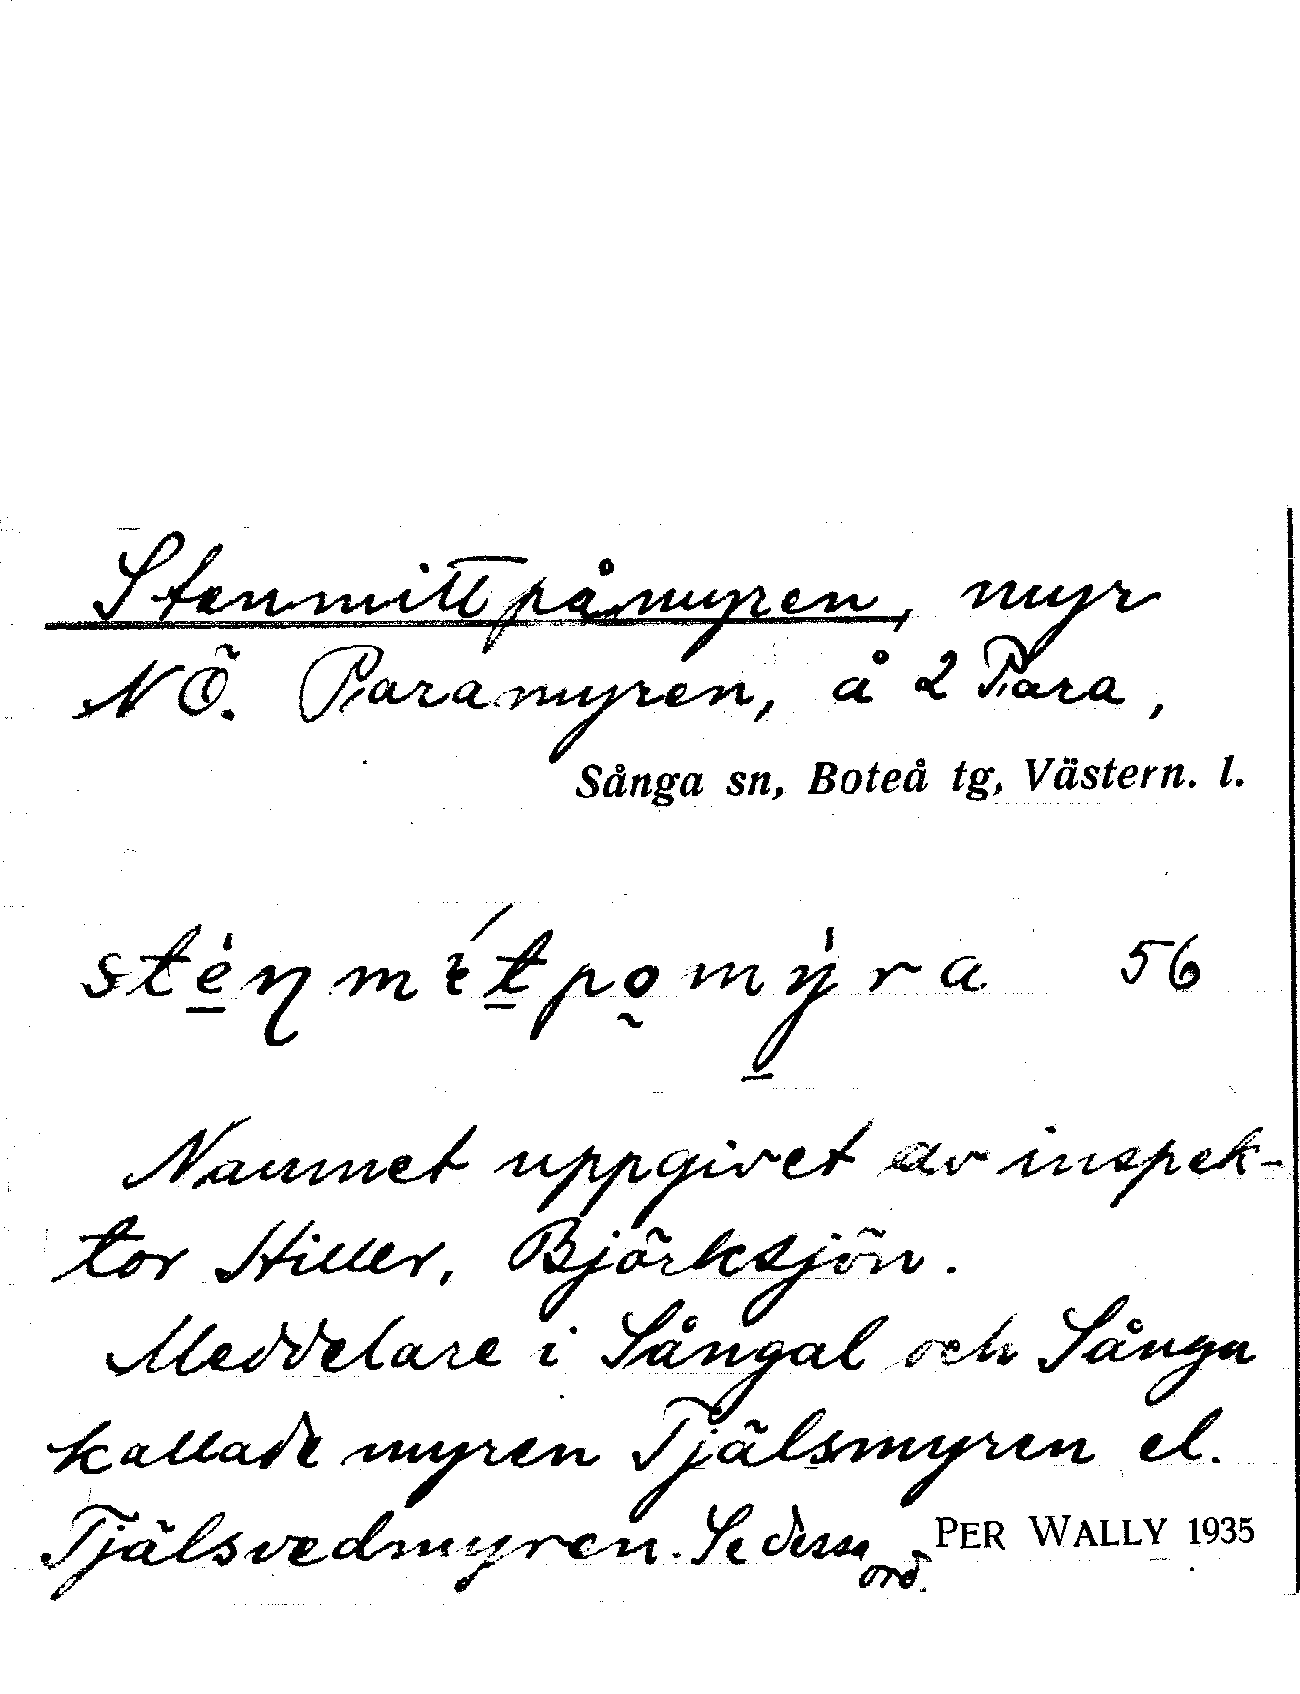 Stenmittpåmyren, myr
NÖ. Paramyren, å 2 Para,
Sånga sn, Boteå tg, Västern. l.
56
Namnet uppgivet av inspek-
tor Hiller, Björksjön.
Meddelare i Sångal och Sånga
kallade myren Tjälsmyren el.
Tjälsvedmyren. Se dessa ord.
PER WALLY 1935